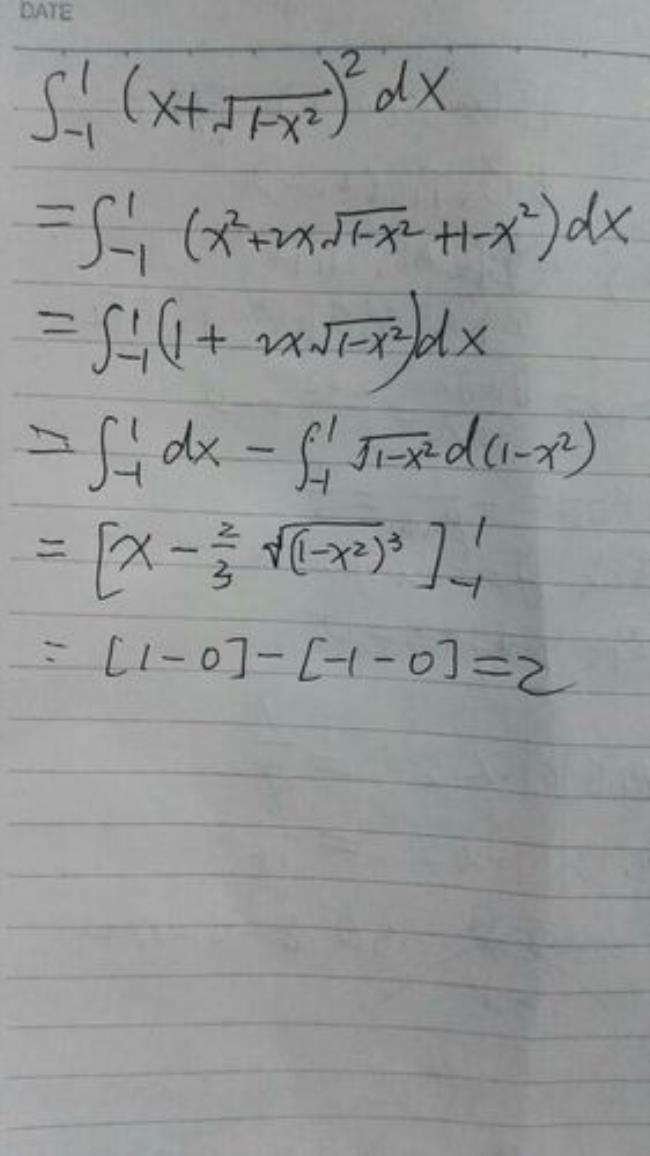 DATE
∫₋₁¹ (x+√(1-x²))² dx
=∫₋₁¹ (x²+2x√(1-x²)+1-x²)dx
=∫₋₁¹(1+2x√(1-x²))dx
=∫₋₁¹ dx-∫₋₁¹ √(1-x²) d(1-x²)
=[x-2/3 √((1-x²)³)]₋₁¹
=[1-0]-[-1-0]=2